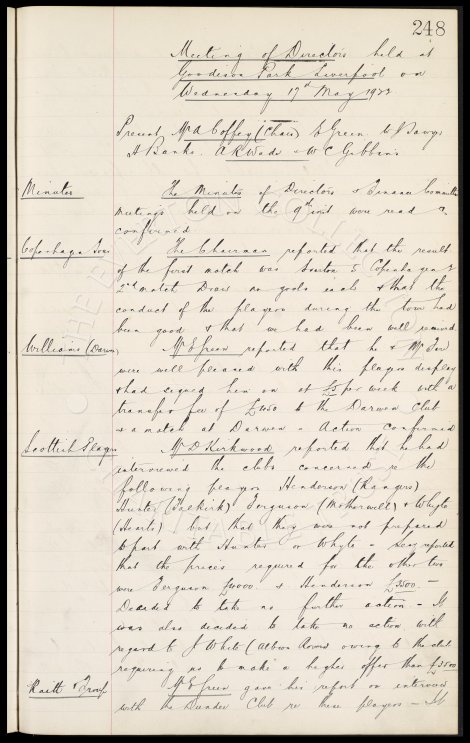 248
Meeting of Directors held at
Goodison Park Liverpool on
Wednesday 17th May 1922
Present Mr A Coffey (Chair) E Green W Sawyer
A Banks. A R Wade & W C Gibbins
Minutes
The Minutes of Directors & Finance Committee
meetings held on the 9th inst were read &
confirmed
Copenhagen Tour
The Chairman reported that the result
of the first match was Everton 5 Copenhagen 2
2nd match Draw no goals each & that the
conduct of the players during the tour had
been good & that we had been well received
Williams (Darwen)
Mr E Green reported that he &
were well pleased with this players display
& had signed him on at per week with a
transfer fee of to the Darwen Club
& a match at Darwen - Action confirmed
Scottish Players
Mr D Kirkwood reported that he had
interviewed the clubs concerned re the
following players Henderson (Rangers)
Hunter (Falkirk) Ferguson (Motherwell) & Whyte
(Hearts) but that they were not prepared
to part with Hunter or Whyte - Secy reported
that the prices required for the other two
were Ferguson £4000 & Henderson £3500 -
Decided to take no further action - It
was also decided to take no action with
regard to J White (Albion Rovers) owing to the club
requiring us to make a higher offer than £3500
Raitt & Troup
Mr E Green gave his report on interview
with the Dundee Club re these players - It